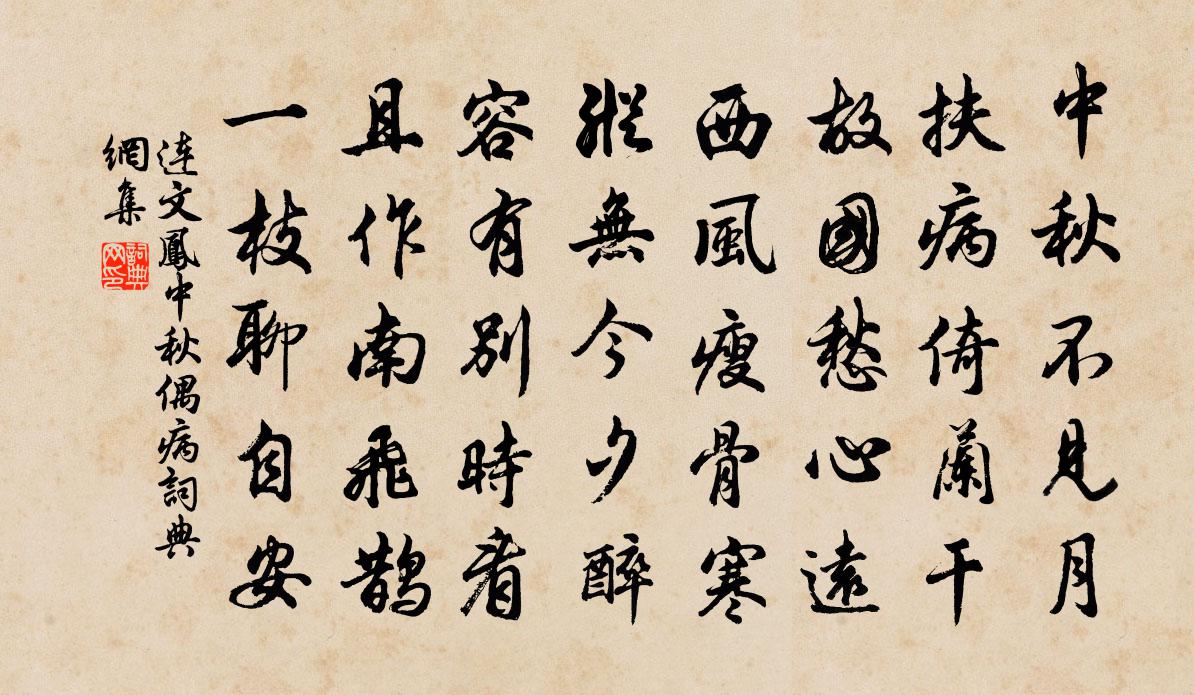 中秋不見月
扶病倚蘭干
故國愁心遠
西風瘦骨寒
縱無今夕醉
容有別時看
且作南飛鵲
一枝聊自安
連文鳳中秋偶病詞典
網集
詞典
网印